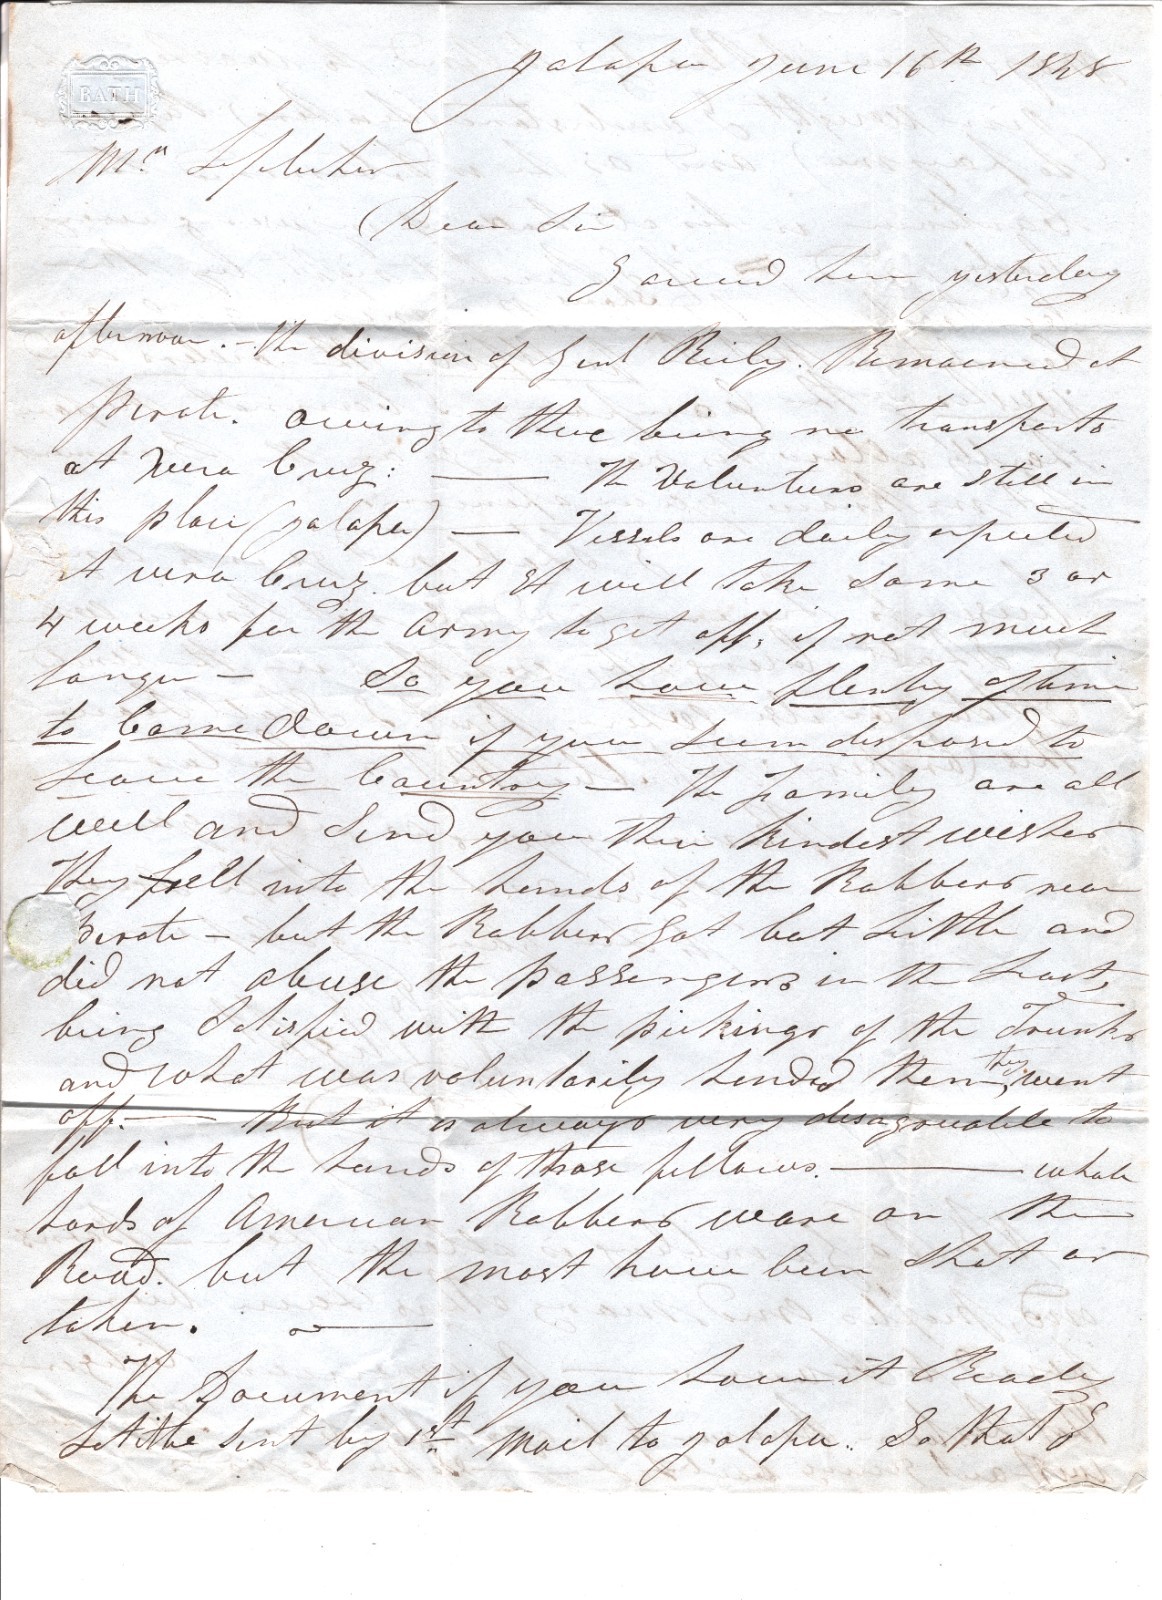 BATH
Jalapa June 16th 1848
Mr.
Dear Sir
I arrived here yesterday
afternoon. - the division of Genl Reily. Remained at
perote. owing to there being no transports
at Vera Cruz: — The Volunteers are still in
this place (Jalapa) — Vessels are daily expected
At vera Cruz. but It will take some 3 or
4 weeks for the Army to get off, if not much
longer — So you have plenty of time
to Come Down if you seem disposed to
Leave the Country — The Family are all
well and Send you their Kindest wishes
They fell into the hands of the Robbers near
Perote — but the Robbers Got but Little and
did not abuse the passengers in the Least,
being Satisfied with the pickings of the Trunks
and what was voluntarily handed them, they went
off. — But it is always very disagreeable to
fall into the hands of those fellows. — whole
hords of American Robbers ware on the
Road. but the most have been shot or
taken. —
The Document if you have it Ready
Let it be sent by 1st Mail to Jalapa.. So that I